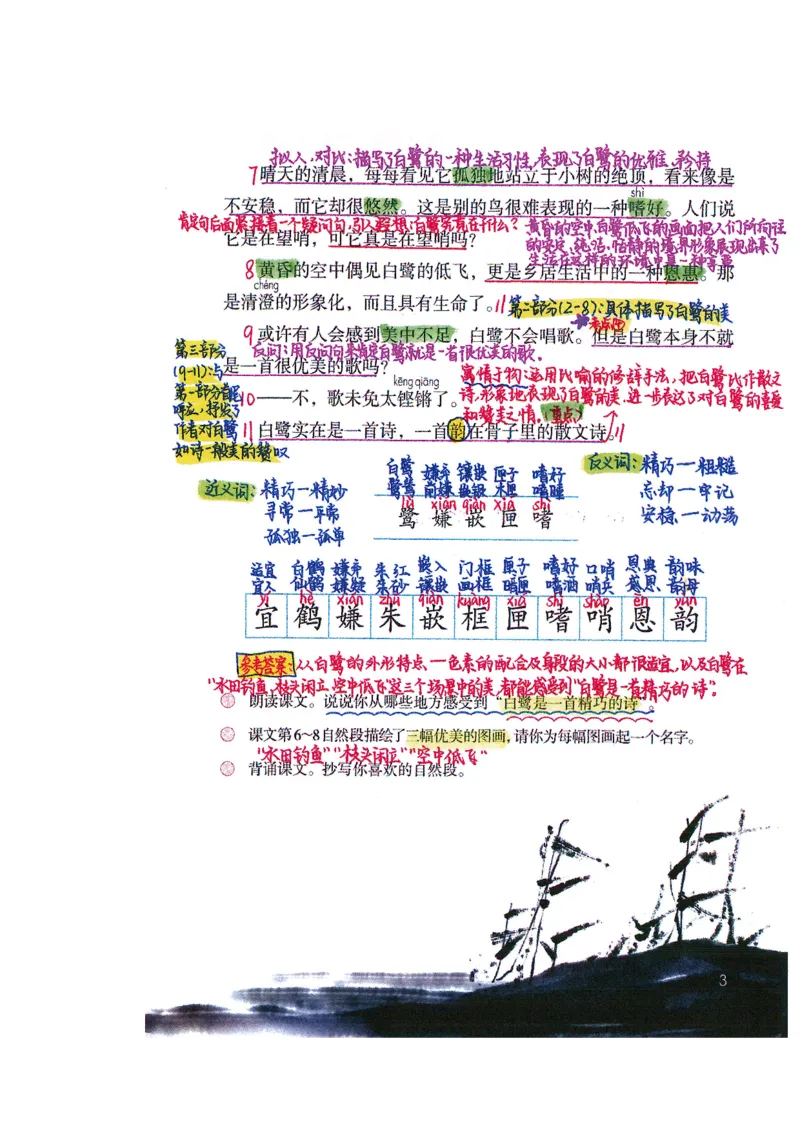 拟人、对比：描写了白鹭的一种生活习性，表现了白鹭的优雅、矜持
7 晴天的清晨，每每看见它孤独地站立于小树的绝顶，看来像是
shì
不安稳，而它却很悠然。这是别的鸟很难表现的一种嗜好。人们说
肯定句后面紧接着一个疑问句，引人遐想：白鹭究竟在干什么？
黄昏的空中，白鹭低飞的画面把人们所向往
它是在望哨，可它真是在望哨吗？
的安定、纯洁、恬静的境界形象展现出来了
生活在这样的环境中是一种享受
8 黄昏的空中偶见白鹭的低飞，更是乡居生活中的一种恩惠。那
chéng
是清澄的形象化，而且具有生命了。//
第二部分(2-8)：具体描写了白鹭的美
考点
9 或许有人会感到美中不足，白鹭不会唱歌。但是白鹭本身不就
反问：用反问句来肯定白鹭就是一首很优美的歌。
是一首很优美的歌吗？
kēng qiāng
10 ——不，歌未免太铿锵了。
寓情于物：运用比喻的修辞手法，把白鹭比作散文
诗，形象地表现了白鹭的美，进一步表达了对白鹭的喜爱
和赞美之情。（重点）
11 白鹭实在是一首诗，一首韵在骨子里的散文诗。//
第三部分
(9-11)：与
第一部分首尾
呼应，抒发了
作者对白鹭
如诗一般美的赞叹
近义词：精巧—精妙
寻常—平常
孤独—孤单
白鹭 嫌弃 镶嵌 匣子 嗜好
鹭鸶 前嫌 嵌嵌 木匣 嗜睡
lù xián qiàn xiá shì
鹭 嫌 嵌 匣 嗜
反义词：精巧—粗糙
忘却—牢记
安稳—动荡
适宜 白鹤 嫌弃 朱红 嵌入 门框 匣子 嗜好 口哨 恩典 韵味
宜人 仙鹤 嫌疑 朱砂 镶嵌 画框 暗匣 嗜酒 哨兵 感恩 韵母
yí hè xián zhū qiàn kuàng xiá shì shào ēn yùn
宜 鹤 嫌 朱 嵌 框 匣 嗜 哨 恩 韵
参考答案：从白鹭的外形特点—色素的配合及身段的大小都很适宜，以及白鹭在
“水田钓鱼、枝头闲立、空中低飞”这三个场景中的美，都能感受到“白鹭是一首精巧的诗”。
朗读课文。说说你从哪些地方感受到“白鹭是一首精巧的诗”。
课文第6~8自然段描绘了三幅优美的图画，请你为每幅图画起一个名字。
“水田钓鱼”“枝头闲立”“空中低飞”
背诵课文。抄写你喜欢的自然段。
3